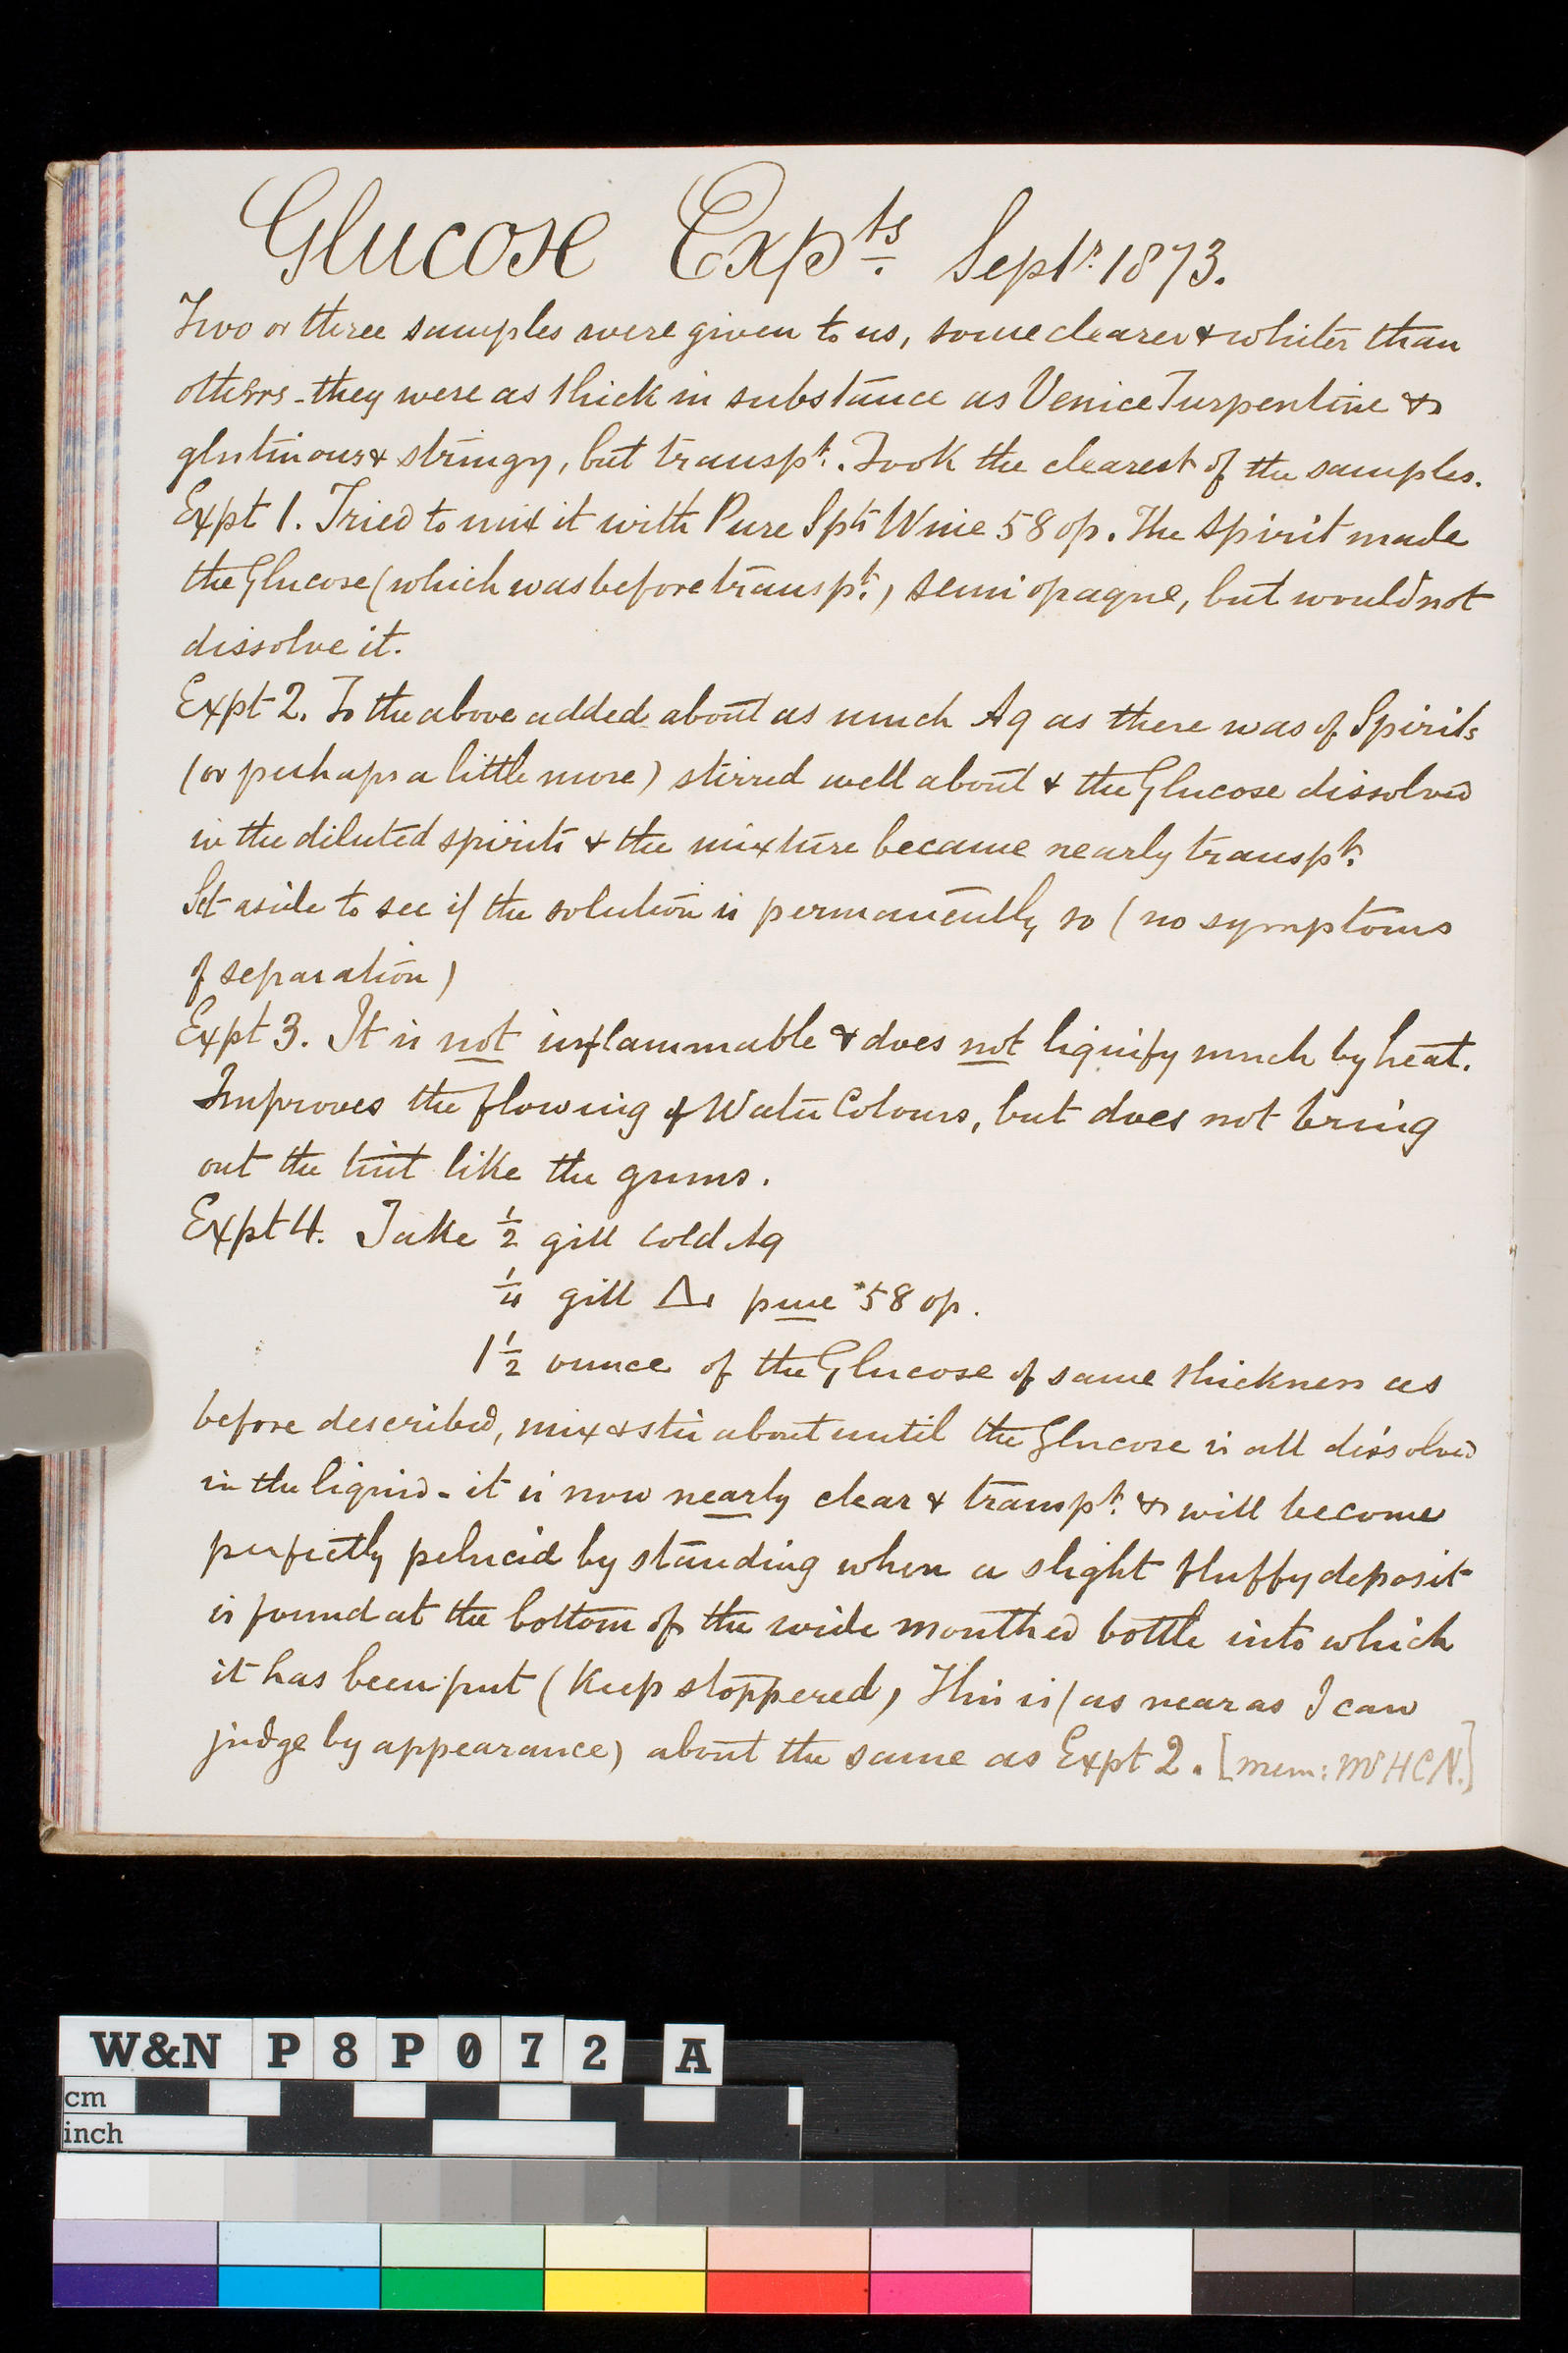 Glucose Expts. Septr. 1873.
Two or three samples were given to us, some clearer & whiter than
others - they were as thick in substance as Venice Turpentine &
glutinous & stringy, but transpt. Took the clearest of the samples.
Expt 1. Tried to mix it with Pure Spts Wine 58 op. The spirit made
the Glucose (which was before transpt.) semi opaque, but would not
dissolve it.
Expt 2. To the above added about as much Aq as there was of Spirits
(or perhaps a little more) stirred well about & the Glucose dissolved
in the diluted spirits & the mixture became nearly transpt.
Set aside to see if the solution is permanently so (no symptoms
of separation)
Expt 3. It is not inflammable & does not liquify much by heat.
Improves the flowing of Water Colours, but does not bring
out the tint like the gums.
Expt 4. Take 1/2 gill Cold Aq
1/4 gill Δ pure 58 op.
1 1/2 ounce of the Glucose of same thickness as
before described, mix & stir about until the Glucose is all dissolved
in the liquid - it is now nearly clear & transpt. & will become
perfectly pelucid by standing when a slight fluffy deposit
is found at the bottom of the wide mouthed bottle into which
it has been put (Keep stoppered) This is (as near as I can
judge by appearance) about the same as Expt 2. [mem: Mr HCN.]
W&N P8P072 A
cm
inch